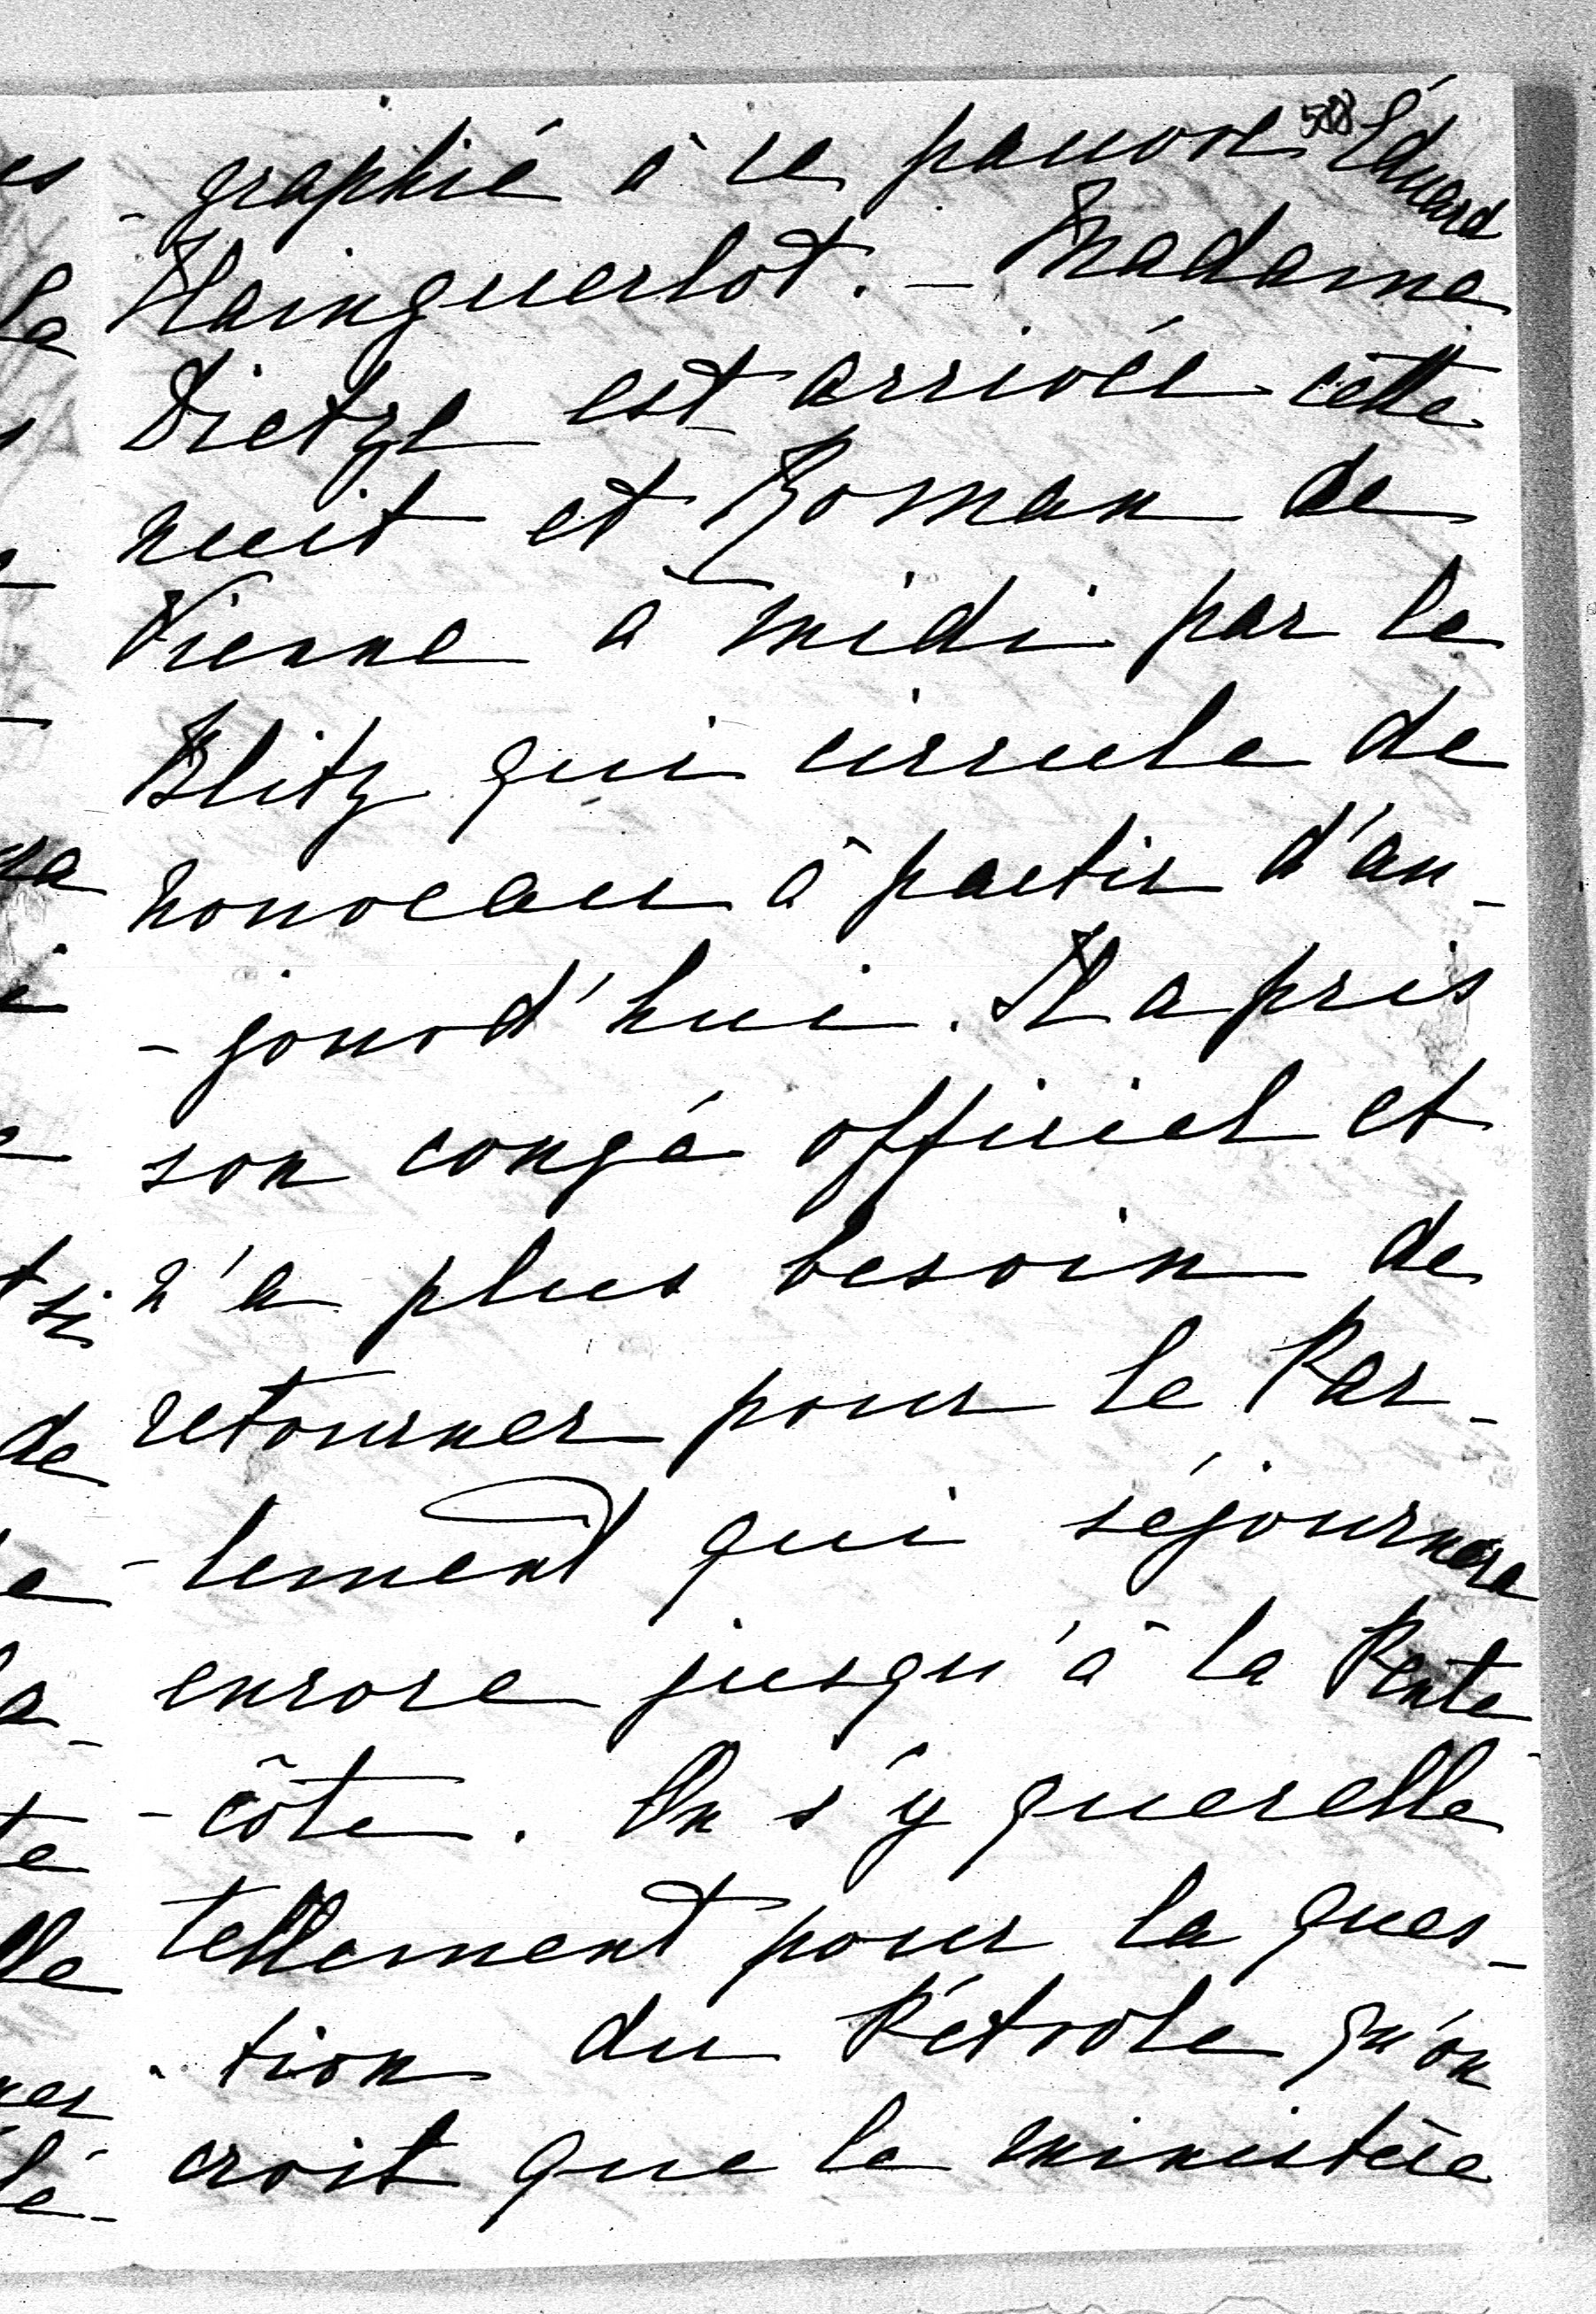 588
-graphié à ce pauvre Éduard
Hainguerlot. - Madame
Dietze est arrivée cette
nuit et Roman de
Vienne à midi par le
Blitz qui circule de
nouveau à partir d'au-
-jourd'hui. Il a pris
son congé officiel et
n'a plus besoin de
retourner pour le Par-
-lement qui séjournera
encore jusqu'à la Pente-
-côte. On s'y querelle
tellement pour la ques-
-tion du Pétrole qu'on
croit que le ministère